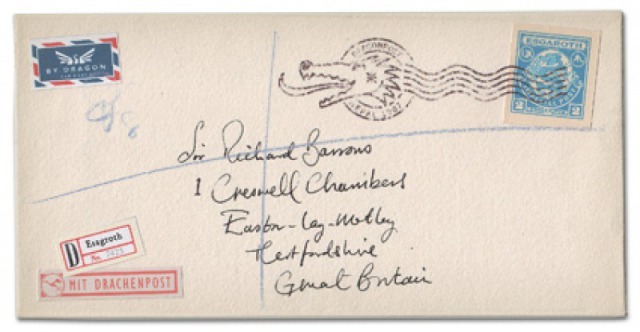 BY DRAGON
DRAGONPOST
ESGAROTH
2 2
Sir Richard Barrons
1 Creswell Chambers
Easton-Lay-Motley
Hertfordshire
Great Britain
D
No.
MIT DRACHENPOST